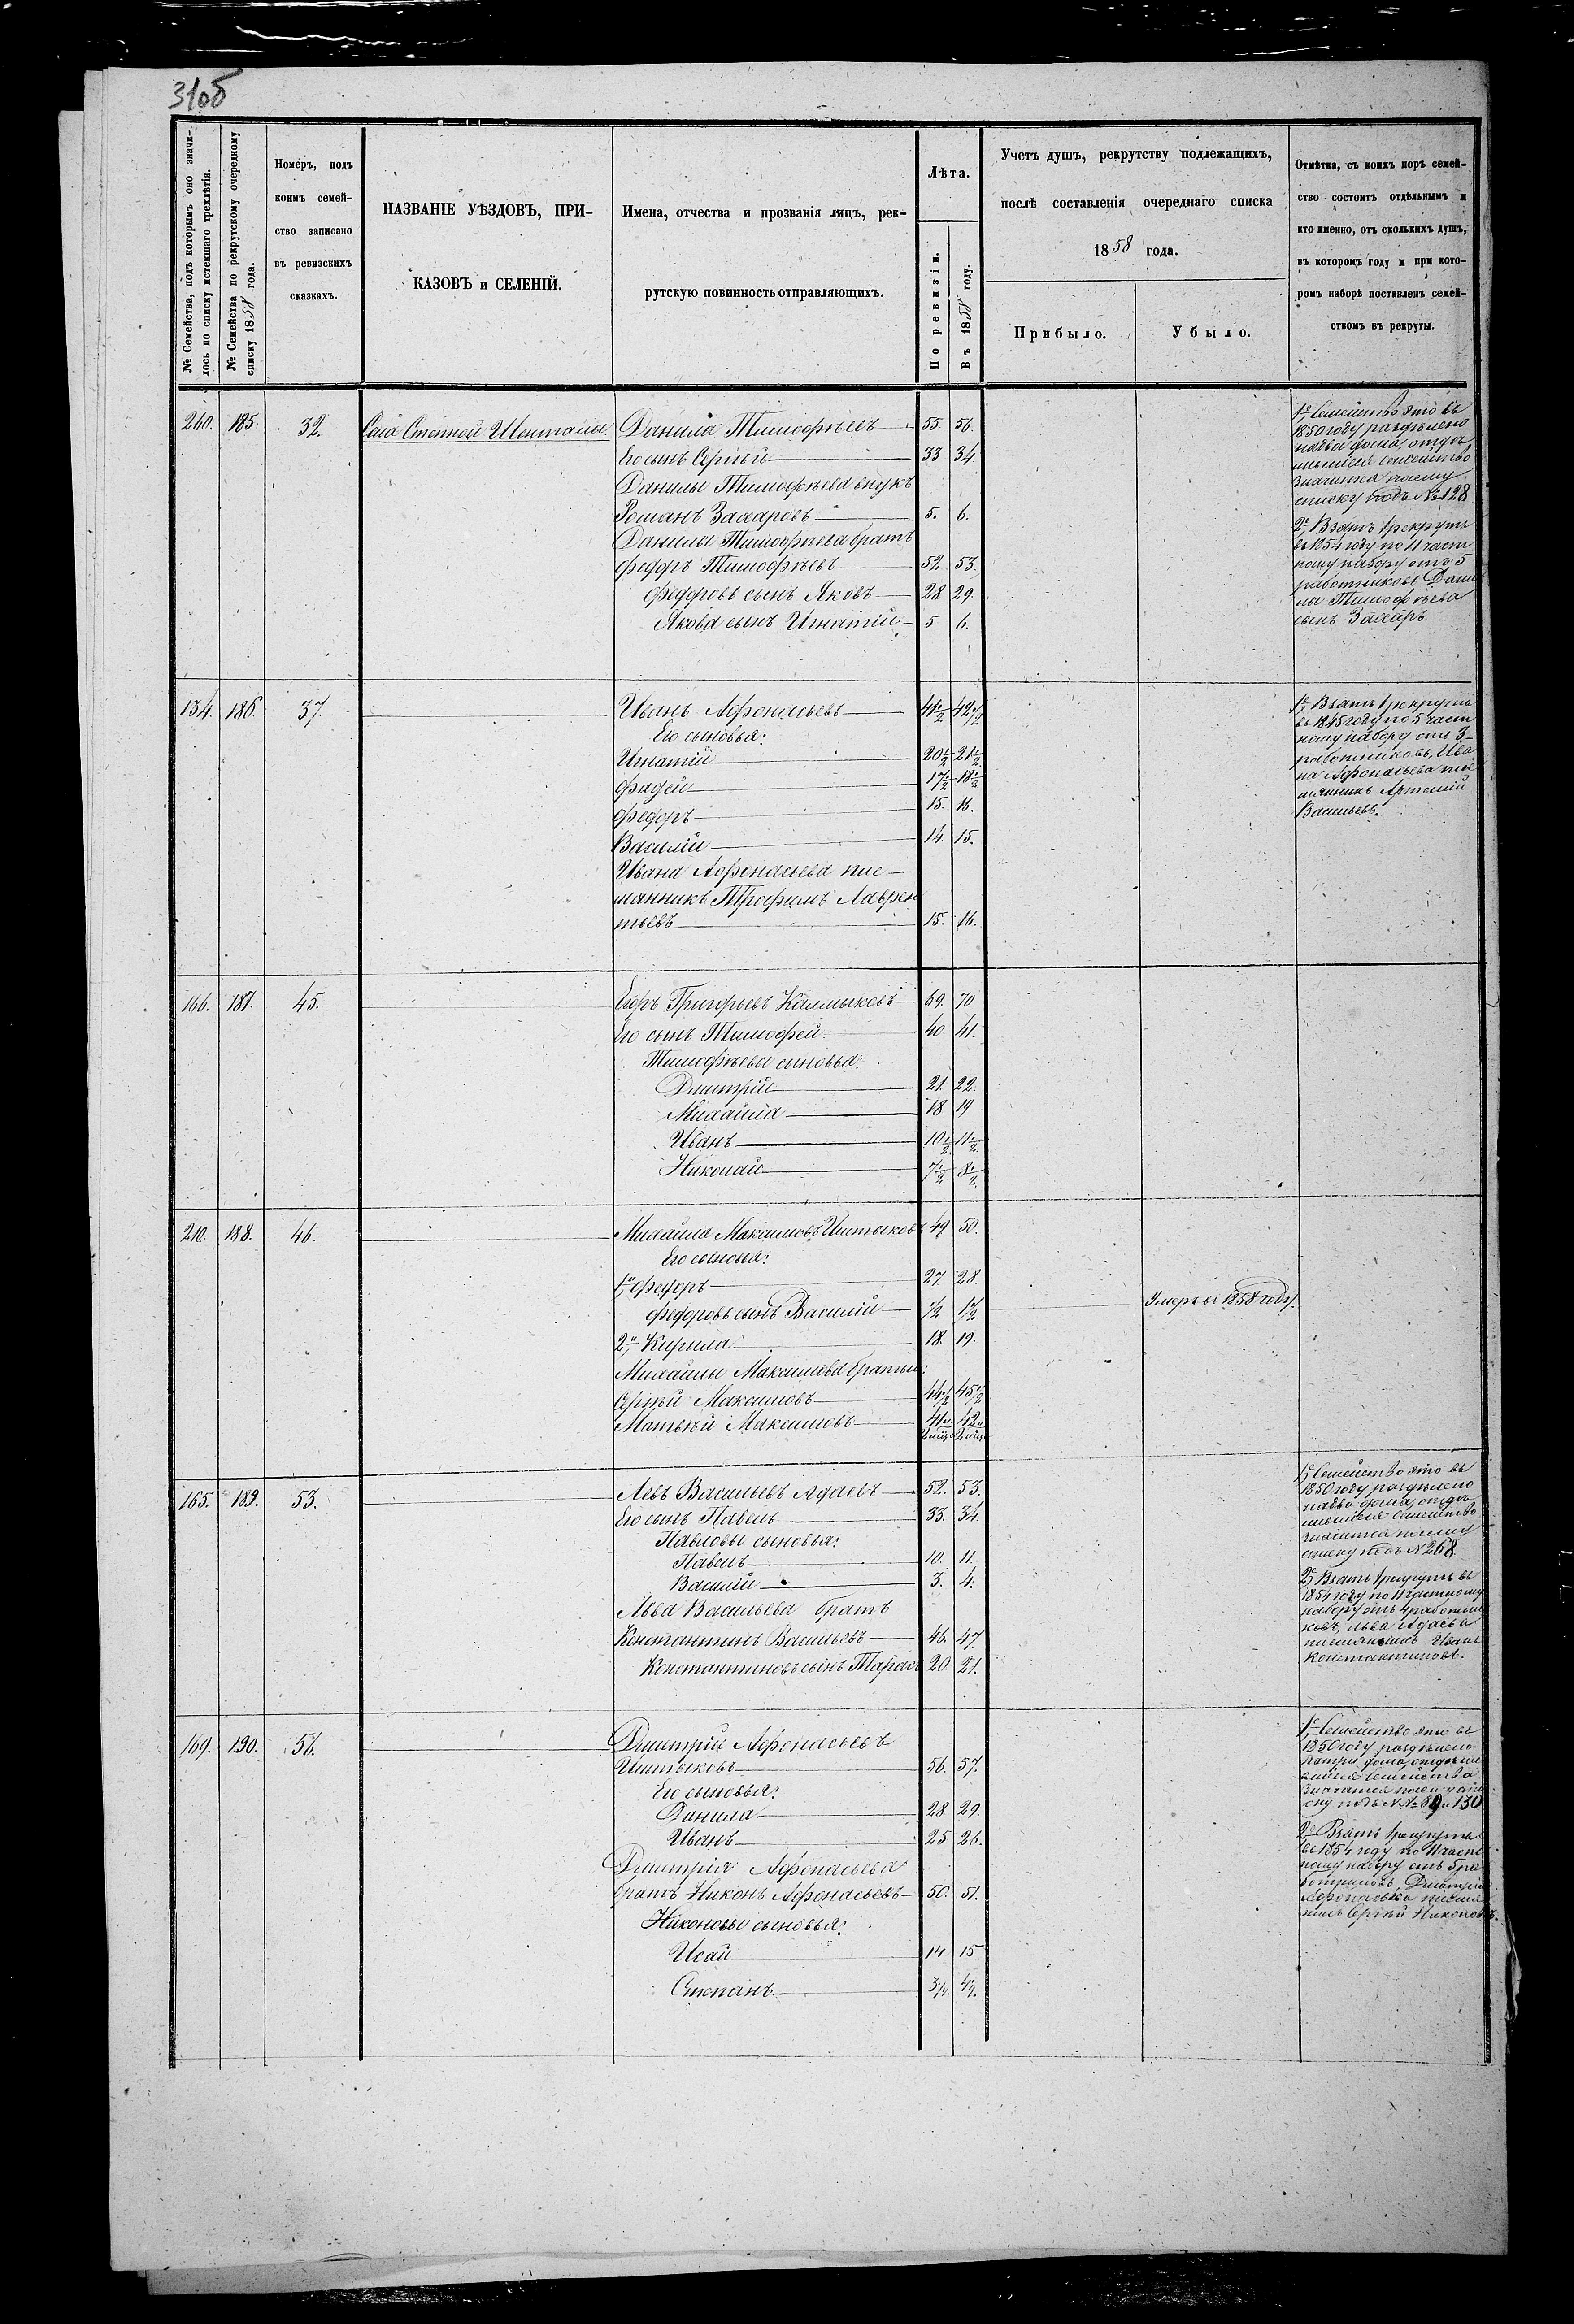 31об
№ Семейства, подъ которымъ оно значи-
лось по списку истекшаго трехлѣтія.
№ Семейства по рекрутскому очередному
списку 1858 года.
Номеръ, подъ
коимъ семей-
ство записано
въ ревизскихъ
сказкахъ.
НАЗВАНІЕ УѢЗДОВЪ, ПРИ-
КАЗОВЪ и СЕЛЕНІЙ.
Имена, отчества и прозванія лицъ, рек-
рутскую повинность отправляющихъ.
Лѣта.
По ревизіи.
Въ 1858 году.
Учетъ душъ, рекрутству подлежащихъ,
послѣ составленія очереднаго списка
1858 года.
Прибыло.
Убыло.
Отмѣтка, съ коихъ поръ семей-
ство состоитъ отдѣльнымъ и
кто именно, отъ сколькихъ душъ,
въ которомъ году и при кото-
ромъ наборѣ поставленъ семей-
ствомъ въ рекруты.
260. 185 32. Села Степной Шентала Данила Тимофѣевъ 55. 56.
Его сынъ Сергѣй 33 34
Данилы Тимофѣева внукъ
Романъ Захаровъ 5. 6.
Данилы Тимофѣева братъ
Федоръ Тимофѣевъ 52. 53.
Федоровъ сынъ Яковъ 28 29.
Якова сынъ Игнатій 5 6.
1е Семейство это въ
1850 году раздѣлено
на два дома отдѣ
лившееся семейство
значится по сему
списку подъ № 128
2е Взятъ в рекруты
въ 1854 году по 11 част
ному набору отъ 5
работниковъ Дани
лы Тимофѣева
сынъ Захаръ
134. 186. 37. Иванъ Афонасьевъ 41½ 42½
Его сыновья:
Игнатій 20½ 21½
Фадей 17½ 18½
Федоръ 15. 16.
Василій 14. 15.
Ивана Афонасьева пле-
мянникъ Трофимъ Лаврен
тьевъ 15. 16.
1е Взятъ в рекруты
въ 1845 году по 5 част
ному набору отъ 3
работниковъ, Ива
на Афонасьева пле
мянникъ Артемій
Васильевъ.
166. 187. 45. Егоръ Григорьевъ Калмыковъ 69. 70
Его сынъ Тимофей 40. 41.
Тимофѣева сыновья:
Дмитрій 21. 22.
Михайла 18 19
Иванъ 10½ 11½
Николай 7½ 8½
210. 188. 46. Михайла Максимовъ Иштыковъ 49 50.
Его сыновья:
1й Федоръ 27 28.
Федоровъ сынъ Василій ½ 1½ Умеръ въ 1858 году.
2й Кирила 18. 19.
Михайлы Максимова братья:
Сергѣй Максимовъ 44½ 45½
Матвѣй Максимовъ 41 и 42 и
2 мѣц. 2 мѣц.
165. 189. 53. Левъ Васильевъ Адаевъ 52. 53.
Его сынъ Павелъ 33. 34.
Павловы сыновья:
Павелъ 10. 11.
Василій 3. 4.
Льва Васильева братъ
Константинъ Васильевъ 46. 47.
Константиновъ сынъ Тарасъ 20 21.
1е Семейство это въ
1850 году раздѣлено
на два дома, отдѣ
лившееся семейство
значится по сему
списку подъ № 268
2е Взятъ в рекруты въ
1854 году по 11 частному
набору отъ 4 работни
ковъ, Льва Адаева
племянникъ Иванъ
Константиновъ.
169. 190. 56. Дмитрій Афонасьевъ
Иштыковъ 56. 57.
Его сыновья:
Данила 28. 29.
Иванъ 25 26.
Дмитрія Афонасьева
братъ Никонъ Афонасьевъ 50. 51.
Никоновы сыновья:
Исай 14 15
Степанъ
1е Семейство это въ
1850 году раздѣлено
на три дома, отдѣлив
шіяся семейства
значатся по сему спи
ску подъ №№ 39 и 130
2е Взятъ в рекруты
въ 1854 году по 11 част
ному набору отъ 5 ра
ботниковъ, Дмитрія
Афонасьева племян
никъ Сергѣй Никоновъ.